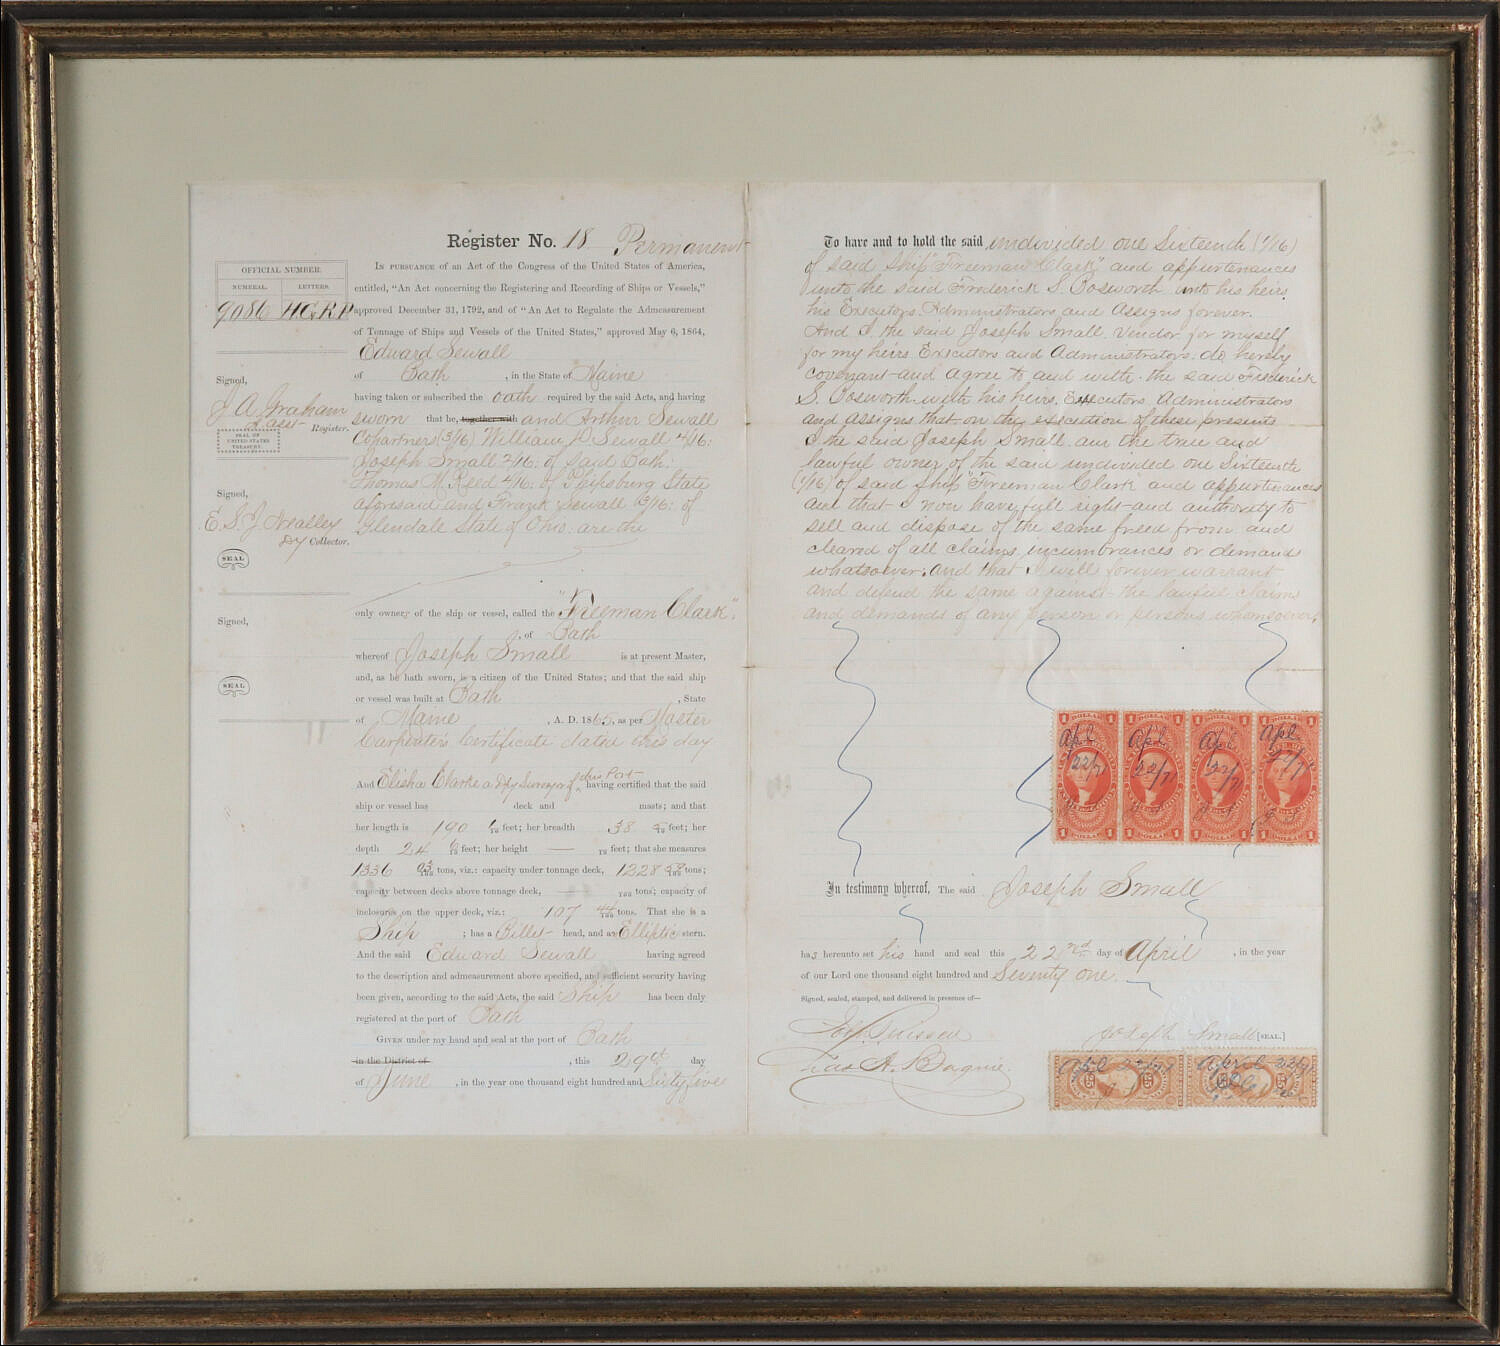 Register No. 18 Permanent
OFFICIAL NUMBER.
NUMERAL. LETTERS.
9086 HGRP
In pursuance of an Act of the Congress of the United States of America,
entitled, "An Act concerning the Registering and Recording of Ships or Vessels,"
approved December 31, 1792, and of "An Act to Regulate the Admeasurement
of Tonnage of Ships and Vessels of the United States," approved May 6, 1864,
Edward Sewall
of Bath, in the State of Maine
having taken or subscribed the oath required by the said Acts, and having
sworn that he, together with and Arthur Sewall
Copartners (3/16) William D. Sewall 4/16:
Joseph Small 2/16: of said Bath:
Thomas M. Reed 4/16: of Phipsburg State
aforesaid and Frank Sewall (3/16: of
Glendale State of Ohio. are the
Signed,
J. A. Graham
Asst Register.
SEAL OF
UNITED STATES
TREASURY.
Signed,
E. S. J. Nealley
Dy Collector.
SEAL
Signed,
SEAL
only owners of the ship or vessel, called the "Freeman Clark".
, of Bath
whereof Joseph Small is at present Master,
and, as he hath sworn, is a citizen of the United States; and that the said ship
or vessel was built at Bath, State
of Maine, A. D. 1865, as per Master
Carpenter's Certificate dated this day
And Elisha Clarke a Dy Surveyor of this Port having certified that the said
ship or vessel has deck and masts; and that
her length is 190 /10 feet; her breadth 38 /10 feet; her
depth 24 /10 feet; her height — /10 feet; that she measures
1336 03/100 tons, viz.: capacity under tonnage deck, 1228 59/100 tons;
capacity between decks above tonnage deck, — /100 tons; capacity of
inclosures on the upper deck, viz.: 107 44/100 tons. That she is a
Ship; has a Billet head, and an Elliptic stern.
And the said Edward Sewall having agreed
to the description and admeasurement above specified, and sufficient security having
been given, according to the said Acts, the said Ship has been duly
registered at the port of Bath
Given under my hand and seal at the port of Bath
in the District of , this 29th day
of June, in the year one thousand eight hundred and Sixty five
To have and to hold the said undivided one Sixteenth (1/16)
of said Ship "Freeman Clark" and appurtenances
unto the said Frederick S. Bosworth unto his heirs
his Executors. Administrators and Assigns forever.
And I the said Joseph Small Vendor for myself
for my heirs Executors and Administrators. do hereby
covenant and agree to and with the said Frederick
S. Bosworth with his heirs. Executors. Administrators
and assigns that on the execution of these presents
I the said Joseph Small am the true and
lawful owner of the said undivided one Sixteenth
(1/16) of said Ship "Freeman Clark and appurtenances
and that I now have full right and authority to
sell and dispose of the same freed from and
cleared of all claims incumbrances or demand
whatsoever: and that I will forever warrant
and defend the same against the lawful claims
and demands of any person or persons whomsoever.
1 DOLLAR 1 1 DOLLAR 1 1 DOLLAR 1 1 DOLLAR 1
Apl Apl Apl Apl
22/71 22/71 22/71 22/71
In testimony whereof, The said Joseph Small
has hereunto set his hand and seal this 22nd day of April, in the year
of our Lord one thousand eight hundred and Seventy one.
Signed, sealed, stamped, and delivered in presence of—
Joseph Small [SEAL.]
Apl 22/71 April 22/71
25 25